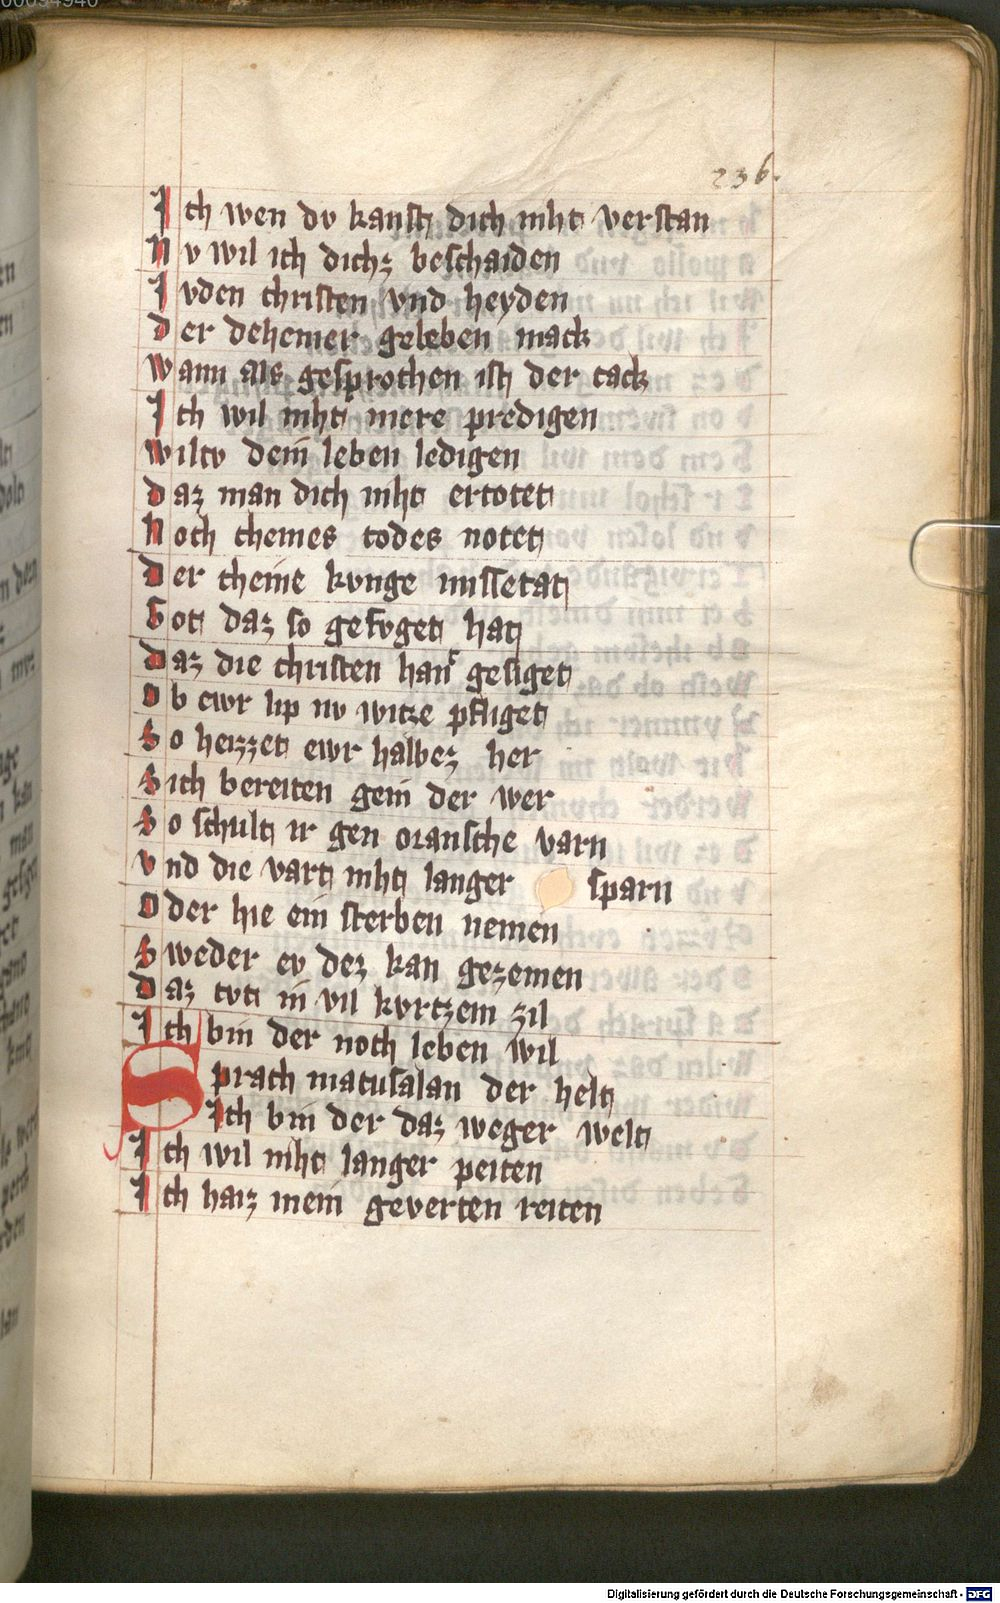 00094940
236.
Ich wen dv kanst dich niht verstan
Nv wil ich dichz beschaiden
Ivden christen vnd heyden
Der deheiner geleben mack
Wann als gesprochen ist der tack
Ich wil niht mere predigen
Wiltv dein leben ledigen
Daz man dich niht ertotet
Noch cheines todes notet
Der cheine kvnge missetat
Got daz so gefvget hat
Daz die christen han gesiget
Ob ewr lip nv witze pfliget
So heizzet ewr halbez her
Sich bereiten gein der wer
So schult ir gen oransche varn
Vnd die vart niht langer sparn
Oder hie ein sterben nemen
Sweder ev dez kan gezemen
Daz tvt in vil kvrtzem zil
Ich bin der noch leben wil
Sprach matusalan der helt
Ich bin der daz weger welt
Ich wil niht langer peiten
Ich haiz mein geverten reiten
Digitalisierung gefördert durch die Deutsche Forschungsgemeinschaft - DFG